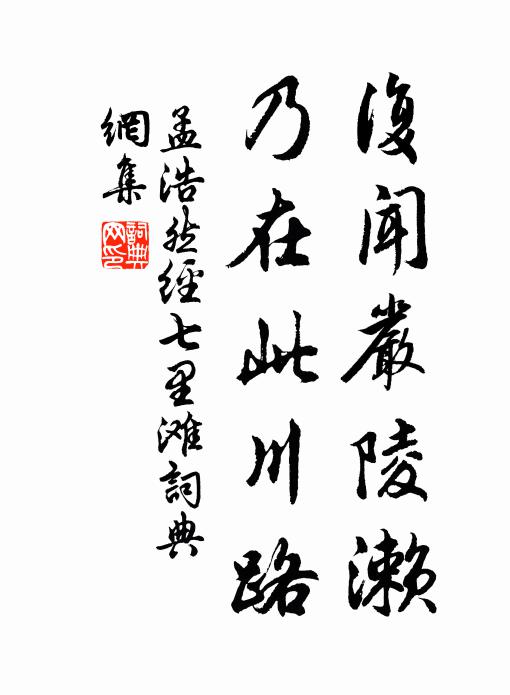 復聞嚴陵瀨
乃在此川路
孟浩然經七里滩詞典
網集
詞典网印